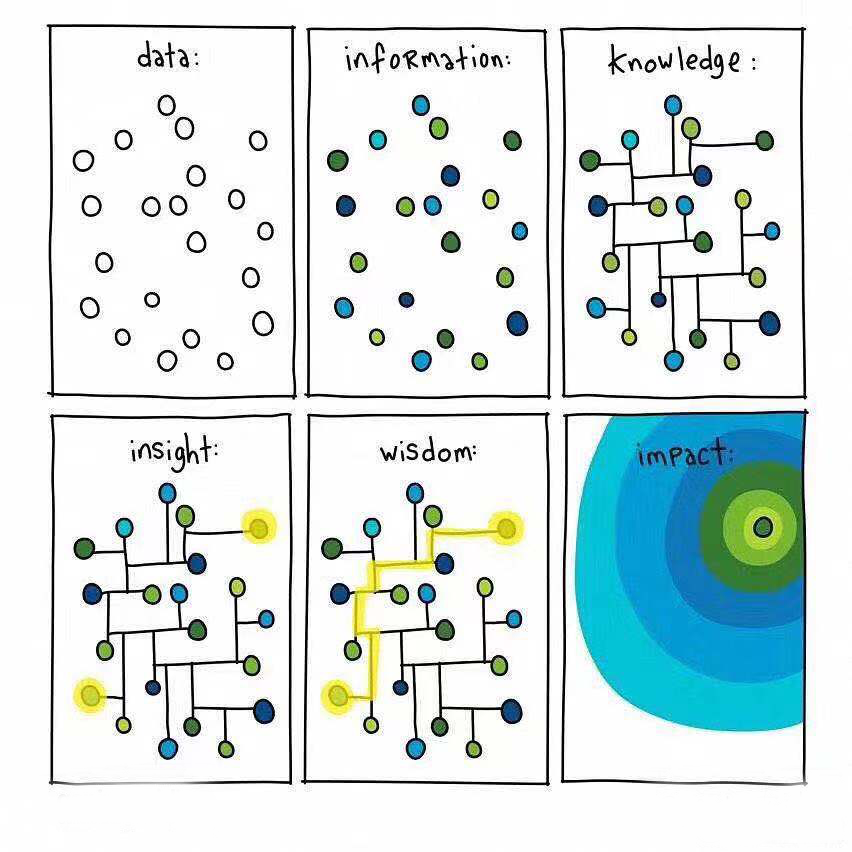 data:
infoRmation:
knowledge:
insight:
wisdom:
impact: